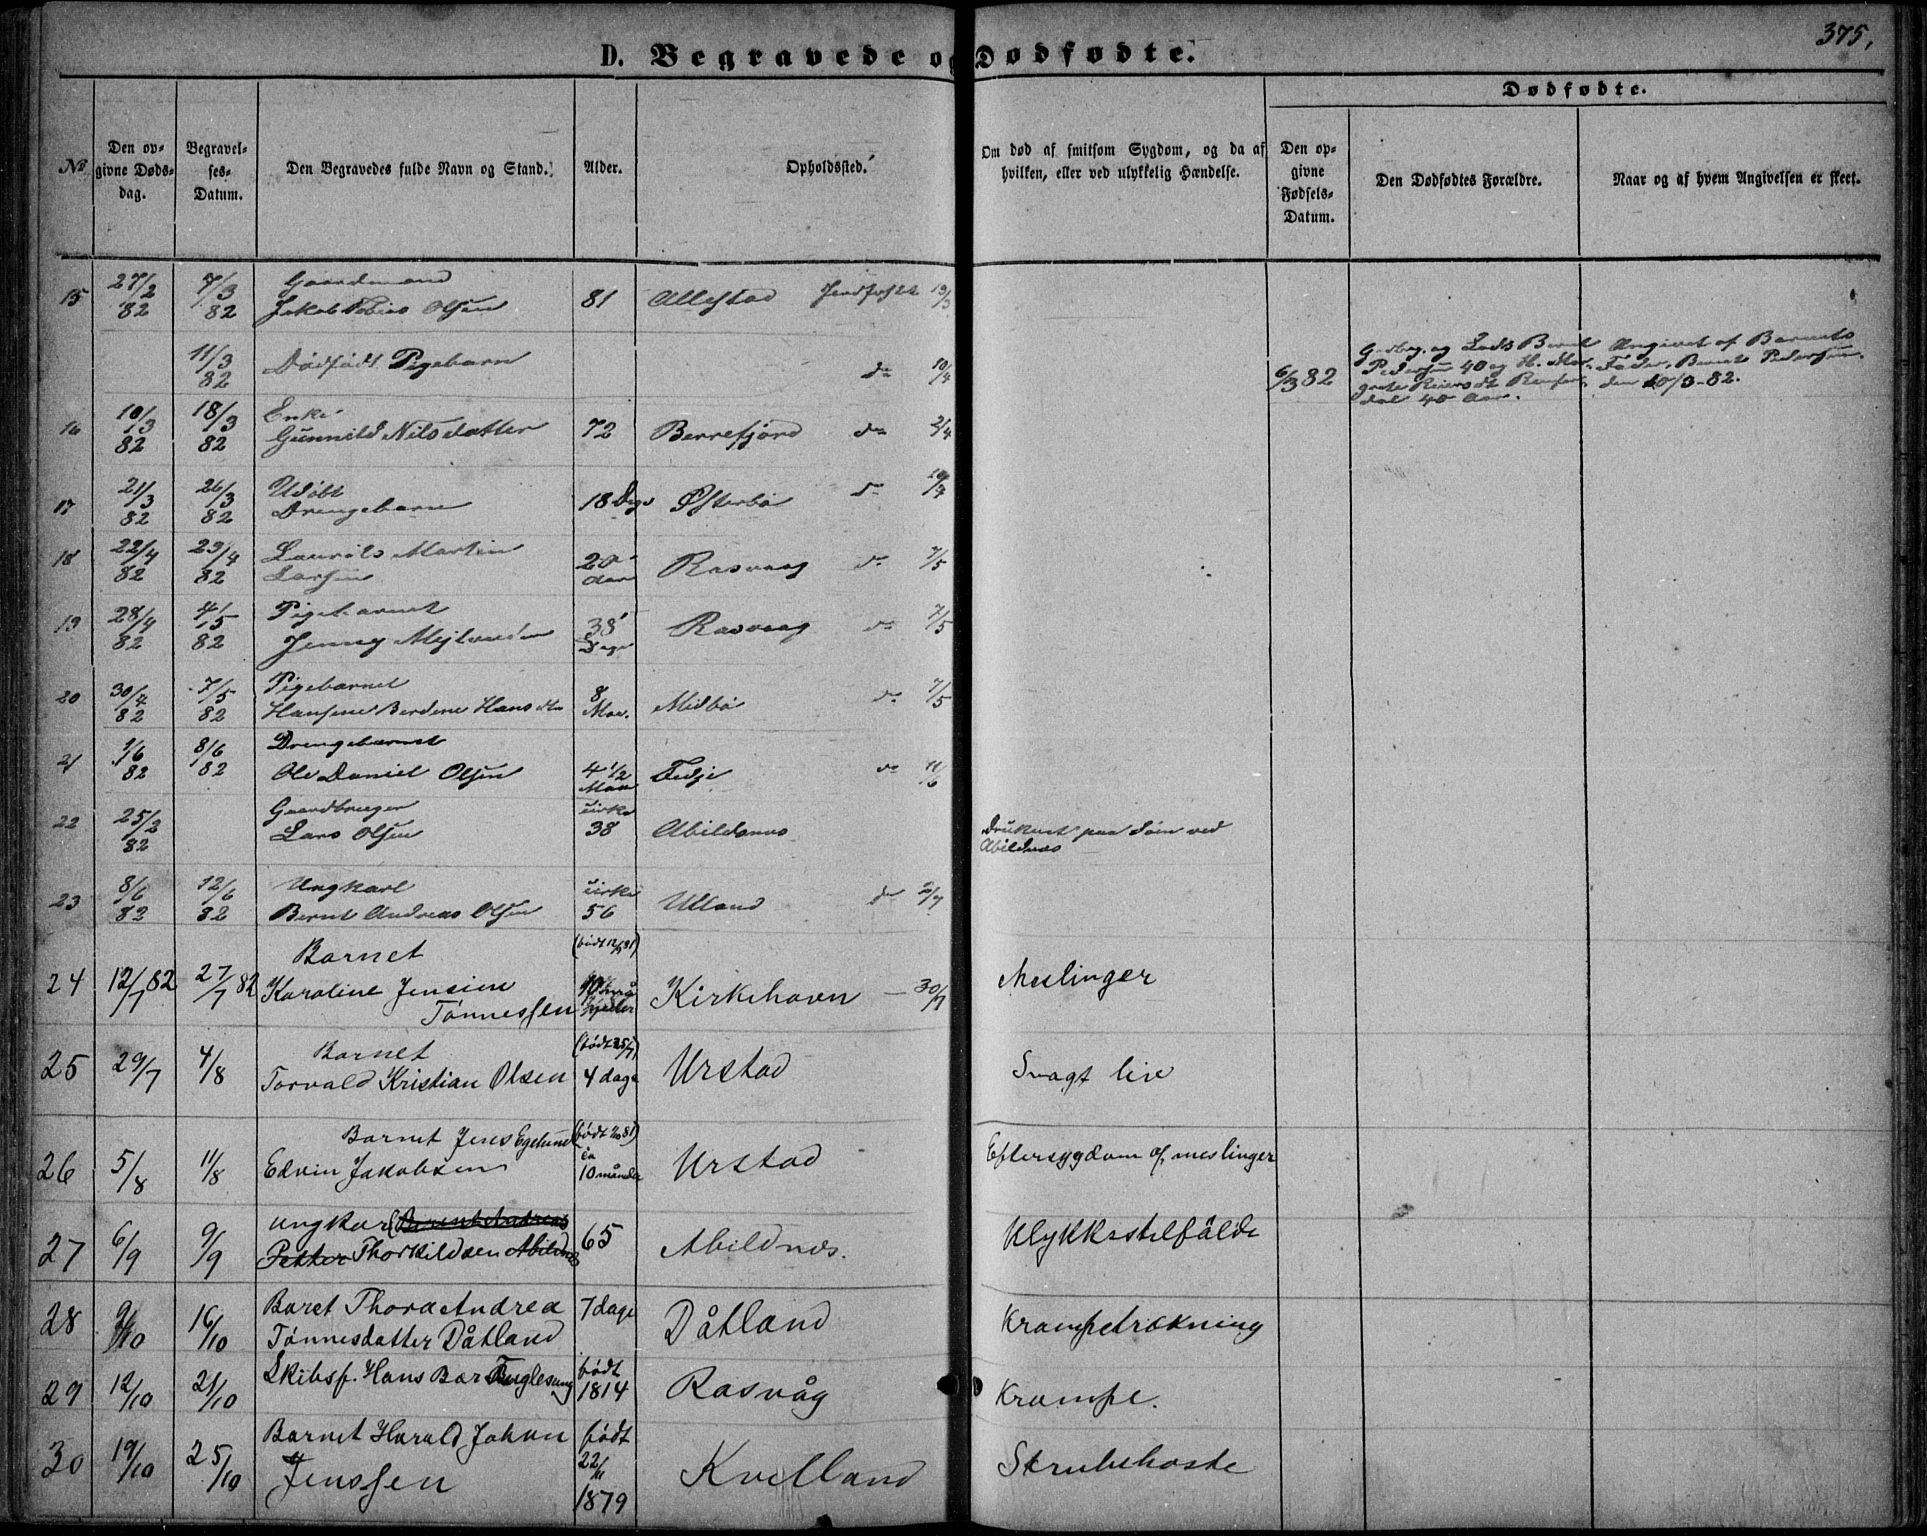 375.
D. Begravede og Dødfødte.
Dødfødte.
No
Den opgivne Dødsdag.
Begravelses-Datum.
Den Begravedes fulde Navn og Stand.
Alder.
Opholdssted.
Om død af smitsom Sygdom, og da af hvilken, eller ved ulykkelig Hændelse.
Den opgivne Fødsels-Datum.
Den Dødfødtes Forældre.
Naar og af hvem Angivelsen er skeet.
15 27/2 82 7/3 82 Gaardmand
Jakob Tobias Olsen 81 Allestad Jordfæstet 19/3
11/3 82 Dødfødt Pigebarn do 6/3 82
Pedersen 40 og H. Mar-
40 Aar.
Angivet af Barnets
Fader, Bernt Pedersen
den 10/3-82.
16 10/3 82 18/3 82 Enke
Gunnild Nilsdatter 72 Berrefjord do 2/4
17 21/3 82 26/3 82 Udøbt
Drengebarn 18 Dage Østerbø do
18 22/4 82 29/4 82 Laurits Martin
Larsen 20 Aar Rasvaag do 7/5
19 28/4 82 4/5 82 Pigebarnet
Jenny 38 Dage Rasvaag do 7/5
20 30/4 82 7/5 82 Pigebarnet
Hansine Berdine Hansdtr 8 Mdr. Midbø do 7/5
21 1/6 82 8/6 82 Drengebarnet
Ole Daniel Olsen 4 1/2 Maan Fedje do 11/6
22 25/2 82 Gaardbruger
Lars Olsen cirka 38 Abildsnæs Druknet paa Søen ved
Abildnæs
23 8/6 82 12/6 82 Ungkarl
Bernt Andreas Olsen cirka 56 Ulland do 2/7
24 12/7 82 27/7 82 Barnet
Karoline Jensine
Tønnessen Kirkehavn — 30/7 Meslinger
25 29/7 4/8 Barnet
Torvald Kristian Olsen (født 25/7) 4 dage Urstad Svagt liv
26 5/8 11/8 Barnet Jens Egelund
Edvin Jakobsen ca 10 måneder Urstad Eftersygdom af meslinger
27 6/9 9/9 Ungkarl Bernt Andreas
Petter Thorkildsen Abildnæs 65 Abildnæs. Ulykkestilfælde
28 9/10 16/10 Baret Thora Andrea
Tønnesdatter Dåtland 7 dage Dåtland Krampetrækning
29 12/10 21/10 Skibsf. Hans Bar Fuglesang født 1814 Rasvåg Krampe.
30 19/10 25/10 Barnet Harald Johan
Jenssen født 22/11 1879 Kvelland Skrubehoste